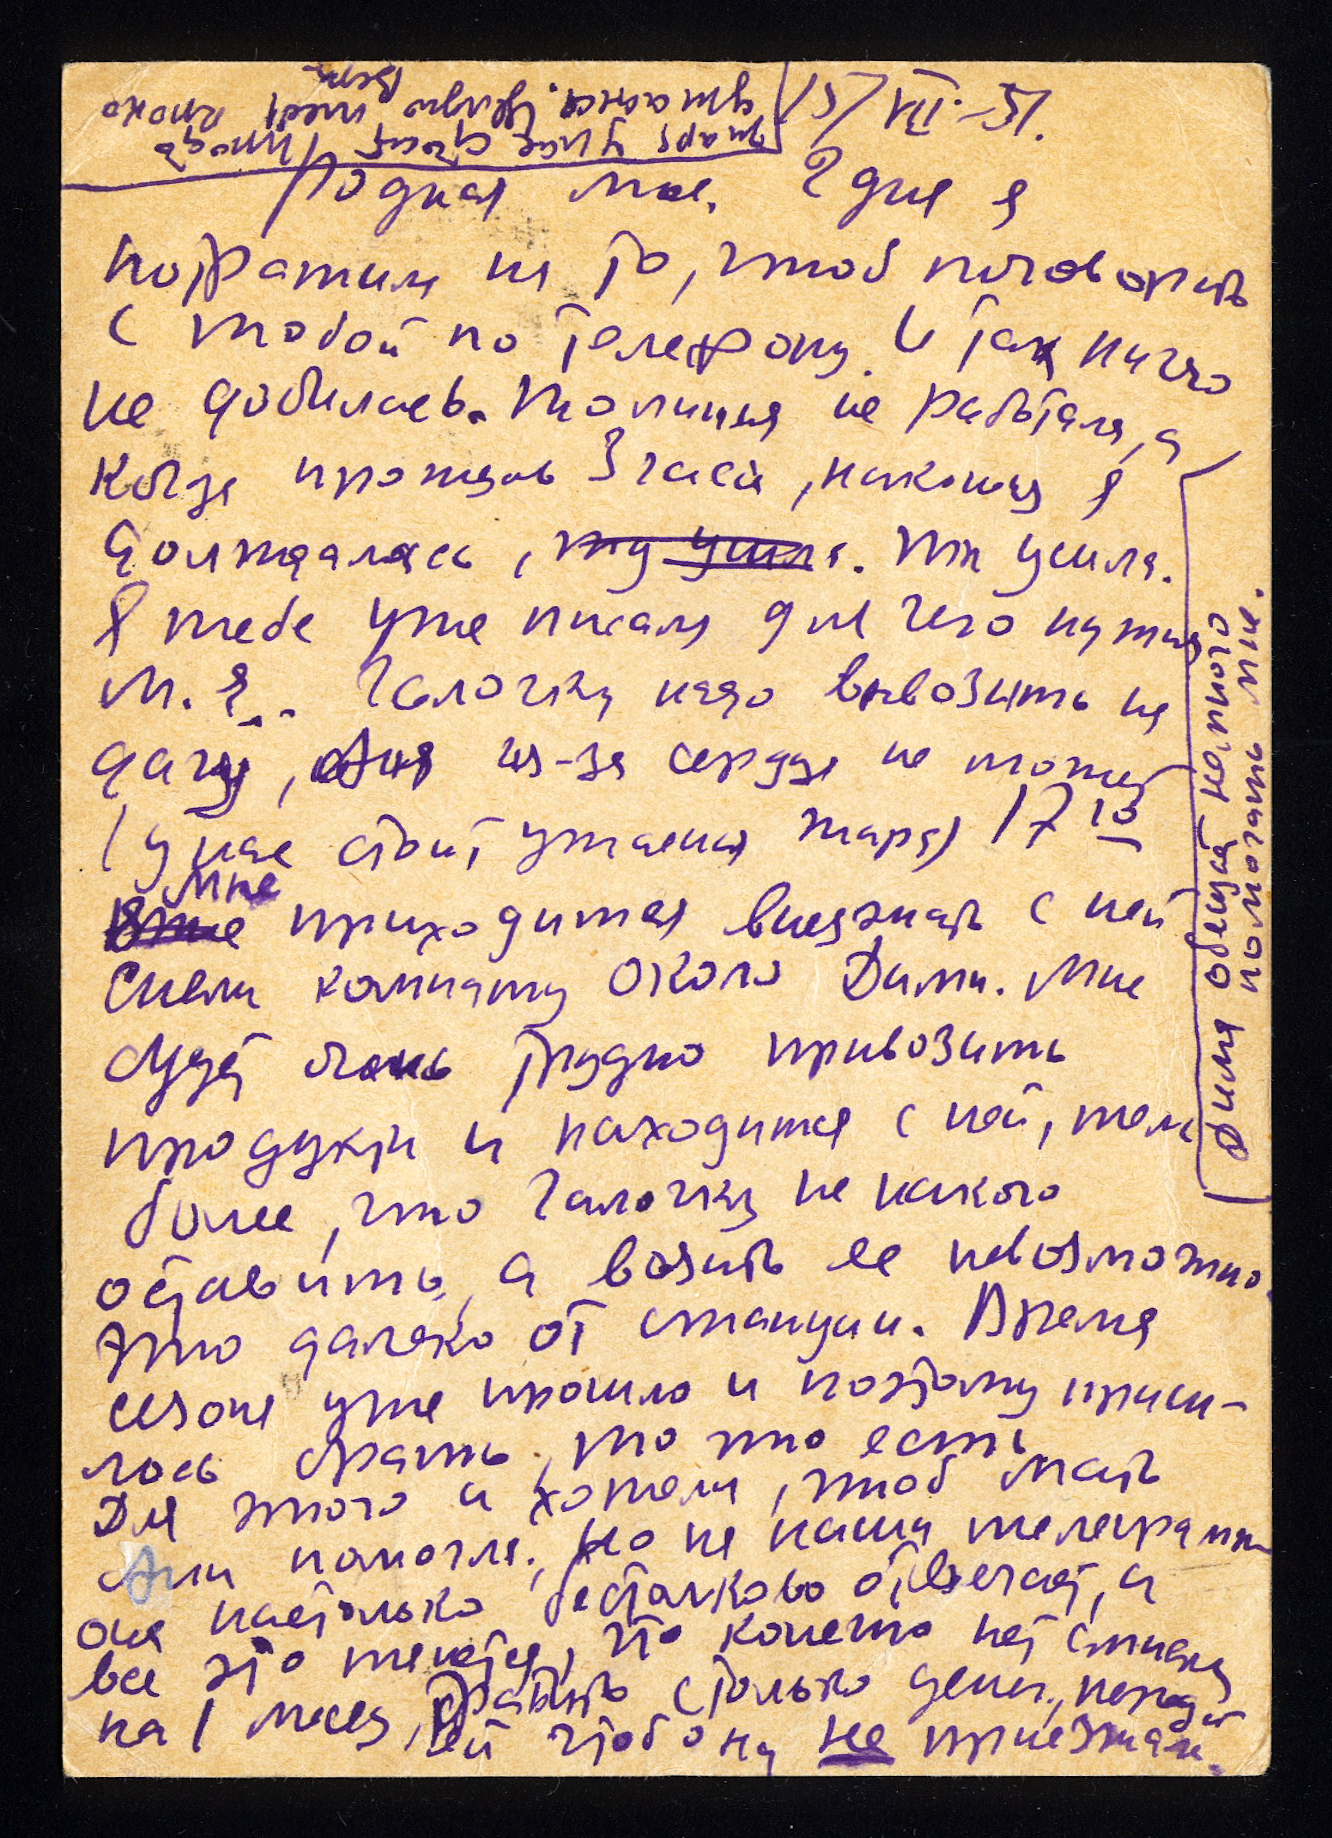 15/VII-51.
Родная моя. 2 дня я
потратила на то, чтоб поговорить
с тобой по телефону. И так ничего
не добилась. не работала, а
когда прошло 3 часа, наконец я
дождалась, ты ушла. Ты ушла.
Я тебе уже писала для чего нужна
М. Я. Галочку надо вывозить на
дачу, Аня из-за сердца не может
(у нас стоит ужасная жара) 17го
мне приходится выезжать с ней
Сняли комнату около Димы. Мне
будет очень трудно привозить
продукты и находится с ней, тем
более, что Галочку не на кого
оставить, а возить ее невозможно.
Это далеко от станции. Время
сезона уже прошло и поэтому приш-
лось брать, то что есть
Для этого и хотели, чтоб мать
Ани помогла. Но на наши телеграммы
она настолько бестолково отвечает, и
все это тянется, что конечно нет смысла
на 1 месяц, тратить столько денег,
ей чтобы она не приезжала.
Дима обещает немного
помогать мне.
жара у нас стоит
ужасная. Целую тебя крепко